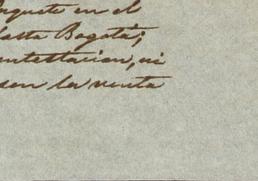 nquete en el
hasta Bogotá;
ontestacion, ni
con la venta